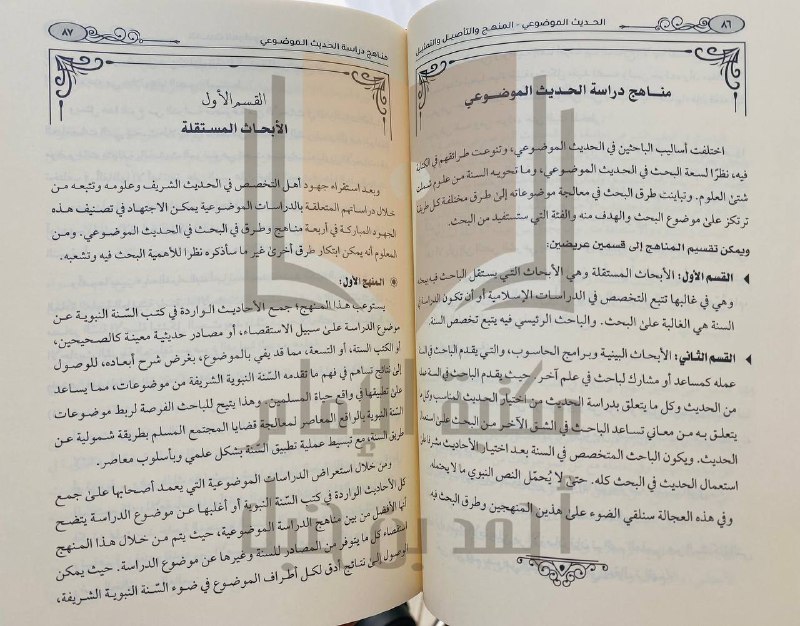 الحديث الموضوعي - المنهج والتأصيل والتمثيل
٨٦
مناهج دراسة الحديث الموضوعي
اختلفت أساليب الباحثين في الحديث الموضوعي، وتنوعت طرائقهم في الكتابة
فيه، نظرًا لسعة البحث في الحديث الموضوعي، وما تحويه السنة من علوم شملت
شتى العلوم. وتباينت طرق البحث في معالجة موضوعاته إلى طرق مختلفة كل طريقة
ترتكز على موضوع البحث والهدف منه والفئة التي ستستفيد من البحث.
ويمكن تقسيم المناهج إلى قسمين عريضين:
القسم الأول: الأبحاث المستقلة وهي الأبحاث التي يستقل الباحث فيه ببحثه
وهي في غالبها تتبع التخصص في الدراسات الإسلامية أو أن تكون الدراسة في
السنة هي الغالبة على البحث. والباحث الرئيسي فيه يتبع تخصص السنة.
القسم الثاني: الأبحاث البينية وبرامج الحاسوب، والتي يقدم الباحث في السنة
عمله كمساعد أو مشارك لباحث في علم آخر، حيث يقدم الباحث في السنة
من الحديث وكل ما يتعلق بدراسة الحديث من اختيار الحديث المناسب وكل ما
يتعلق به من معاني تساعد الباحث في الشق الآخر من البحث على استعمال
الحديث. ويكون الباحث المتخصص في السنة بعد اختيار الأحاديث مشرفًا على
استعمال الحديث في البحث كله. حتى لا يُحمّل النص النبوي ما لا يحتمله.
وفي هذه العجالة سنلقي الضوء على هذين المنهجين وطرق البحث فيه
مناهج دراسة الحديث الموضوعي
٨٧
القسم الأول
الأبحاث المستقلة
وبعد استقراء جهود أهل التخصص في الحديث الشريف وعلومه وتتبعه من
خلال دراساتهم المتعلقة بالدراسات الموضوعية يمكن الاجتهاد في تصنيف هذه
الجهود المباركة في أربعة مناهج وطرق في البحث في الحديث الموضوعي. ومن
المعلوم أنه يمكن ابتكار طرق أخرى غير ما سأذكره نظرًا للأهمية البحث فيه وتشعبه.
المنهج الأول:
يستوعب هذا المنهج؛ جمع الأحاديث الواردة في كتب السّنة النبوية عن
موضوع الدراسة على سبيل الاستقصاء، أو مصادر حديثية معينة كالصحيحين،
أو الكتب الستة، أو التسعة، مما قد يفي بالموضوع، بغرض شرح أبعاده، للوصول
إلى نتائج تساهم في فهم ما تقدمه السّنة النبوية الشريفة من موضوعات، مما يساعد
على تطبيقها في واقع حياة المسلمين. وهذا يتيح للباحث الفرصة لربط موضوعات
السّنة النبوية بالواقع المعاصر لمعالجة قضايا المجتمع المسلم بطريقة شمولية عن
طريق السنة، مع تبسيط عملية تطبيق السّنة بشكل علمي وبأسلوب معاصر.
ومن خلال استعراض الدراسات الموضوعية التي يعمد أصحابها على جمع
كل الأحاديث الواردة في كتب السّنة النبوية أو أغلبها عن موضوع الدراسة يتضح
أنها الأفضل من بين مناهج الدراسة الموضوعية، حيث يتم من خلال هذا المنهج
استقصاء كل ما يتوفر من المصادر للسنة وغيرها عن موضوع الدراسة. حيث يمكن
الوصول إلى نتائج أدق لكل أطراف الموضوع في ضوء السّنة النبوية الشريفة،
مكتبة الإمام
أحمد بن حنبل